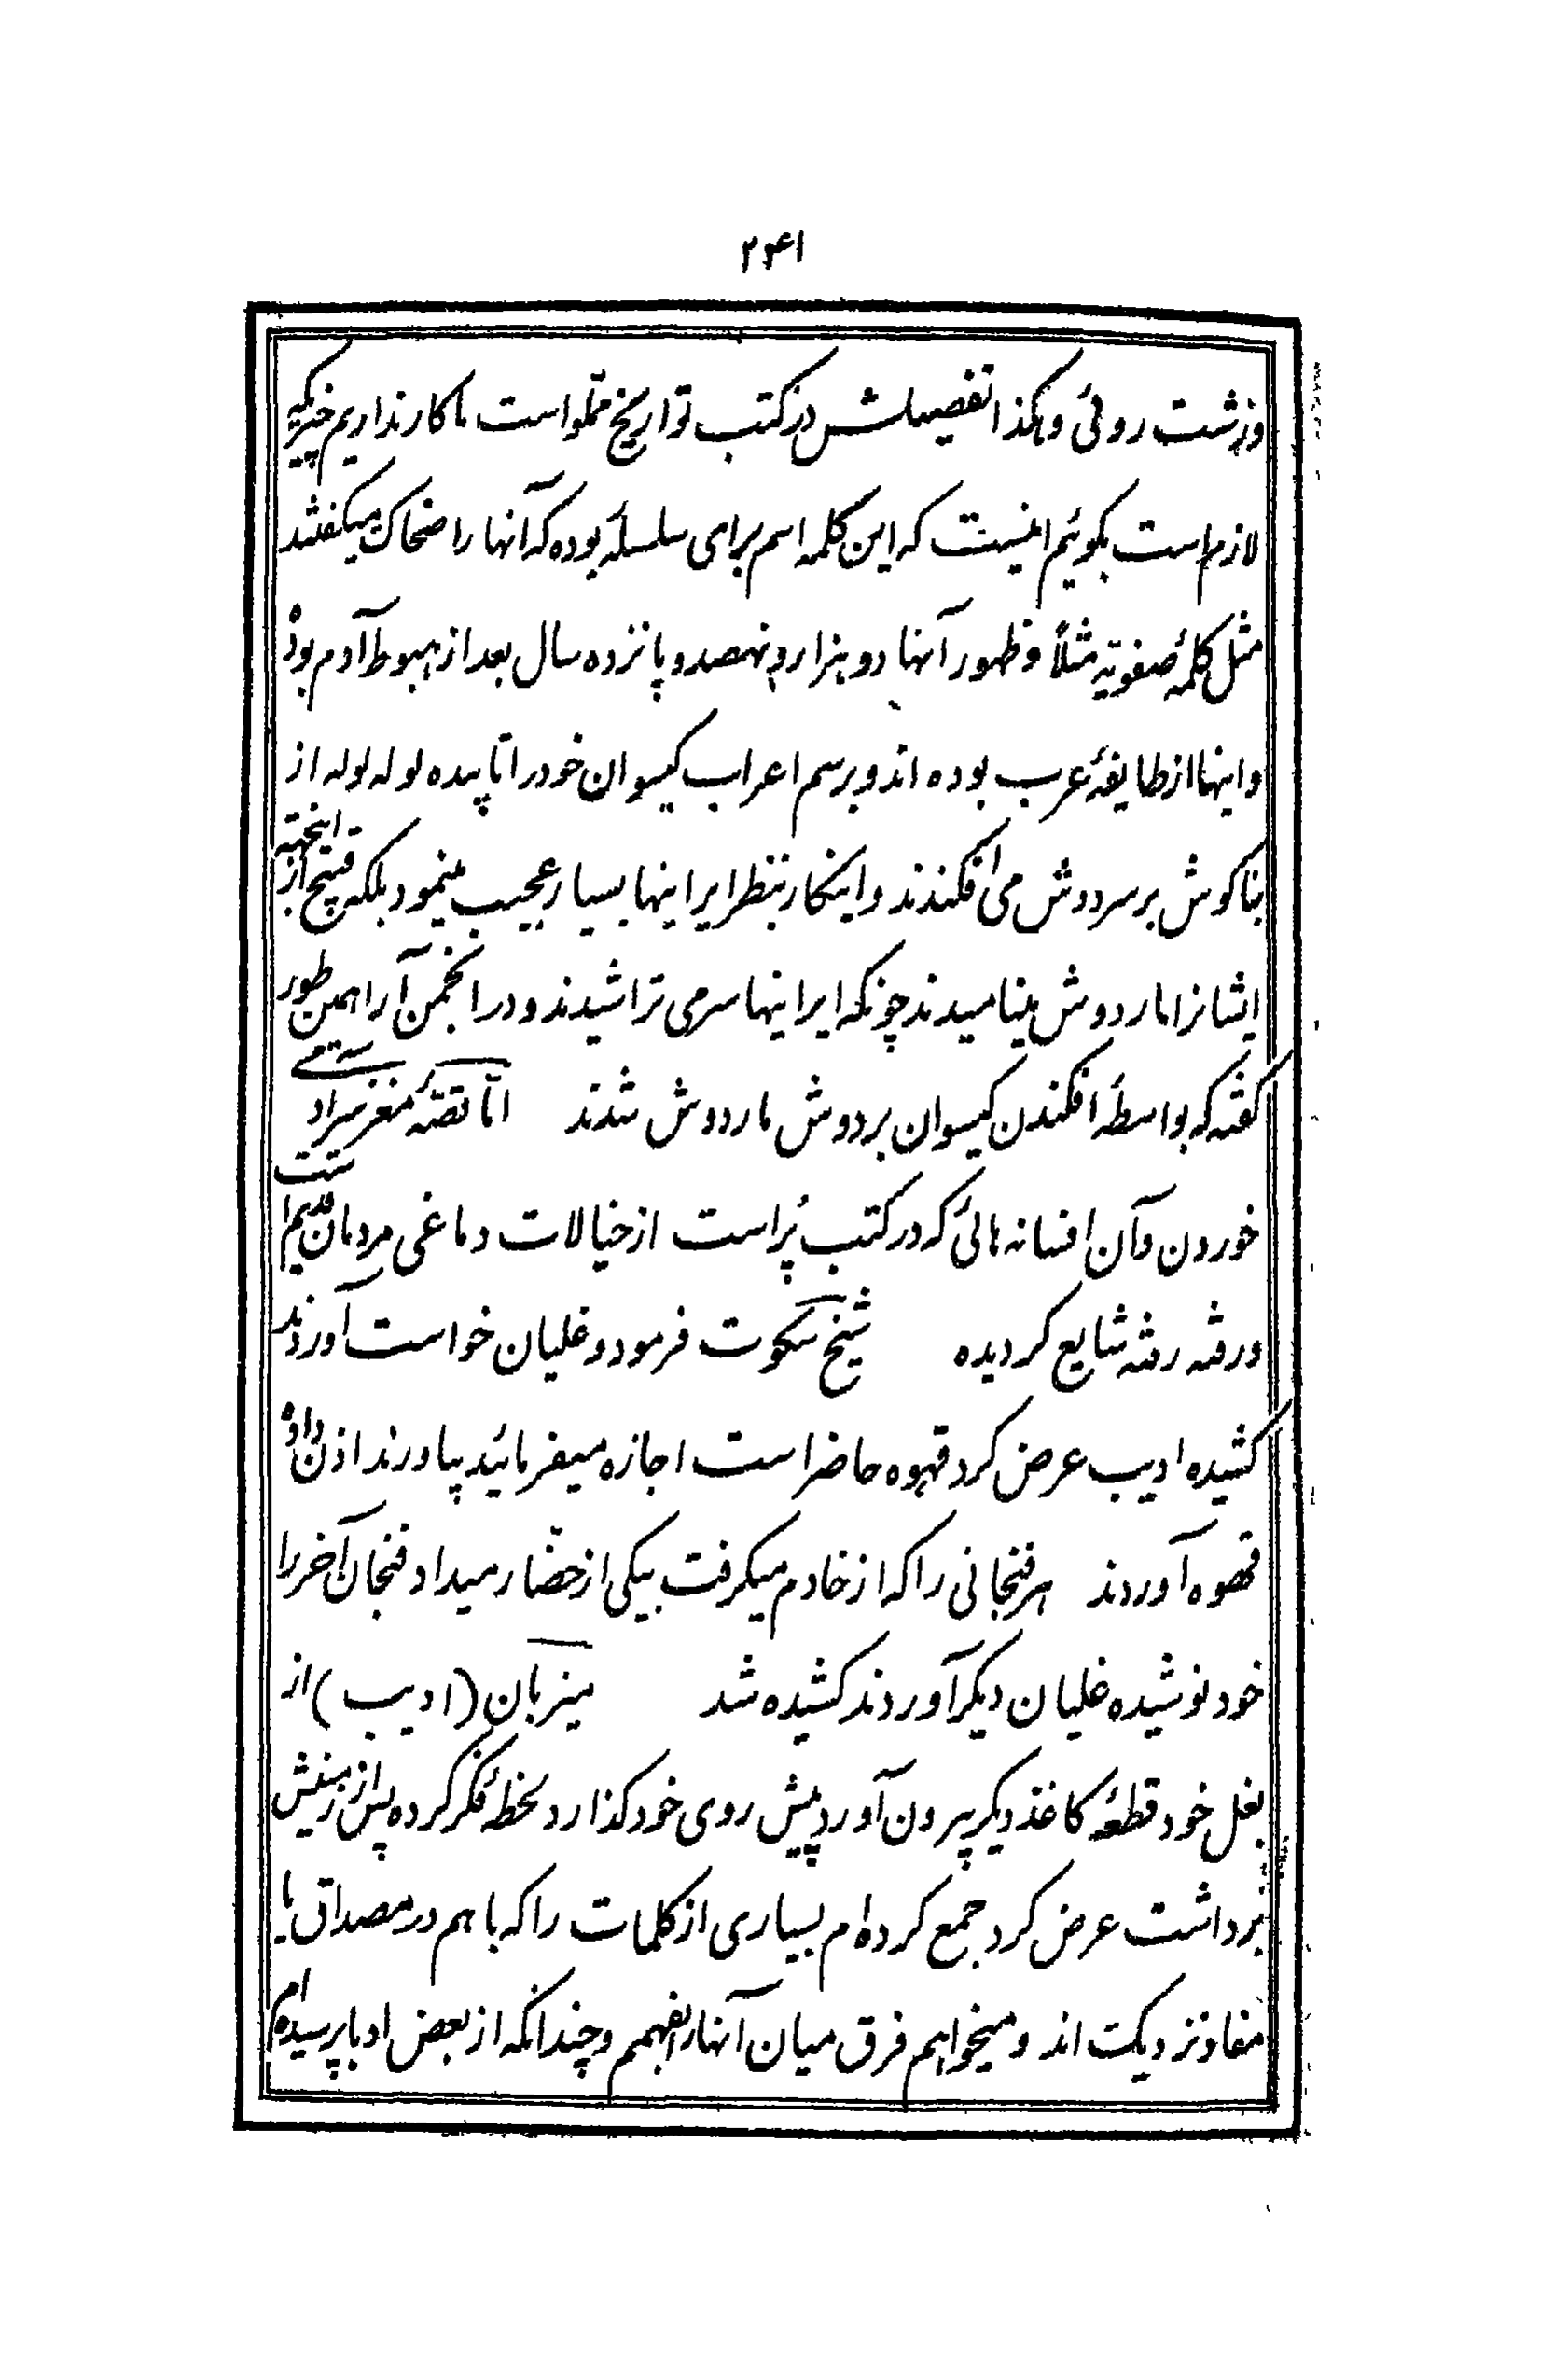 ۲۴۱
و زشت روئی و هکذا تفصیلش در کتب تواریخ مملو است ما کار نداریم چیزیکه
لازم است بگوئیم اینست که این کلمه اسم برای سلسلهٔ بوده که آنها را ضحاک میگفتند
مثل کلمهٔ صفویّه مثلاً و ظهور آنها دو هزار و نهصد و پانزده سال بعد از هبوط آدم بوده
و اینها از طایفهٔ عرب بوده اند و برسم اعراب گیسوان خود را تابیده لوله لوله از
بناگوش بر سر دوش می افکندند و اینکار بنظر ایرانیها بسیار عجیب مینمود بلکه قبیح از اینجهة
ایشانرا مار دوش مینامیدند چونکه ایرانیها سر می تراشیدند و در انجمن آرا همین طور
گفته که بواسطهٔ افکندن گیسوان بر دوش مار دوش شدند امّا قصّهٔ مغز سر آدمی
خوردن و آن افسانه هائی که در کتب پُر است از خیالات دماغی مردمان قدیم است
و رفته رفته شایع گردیده شیخ سکوت فرمود و غلیان خواست آوردند
کشیده ادیب عرض کرد قهوه حاضر است اجازه میفرمائید بیاورند اذن داده
قهوه آوردند هر فنجانی را که از خادم میگرفت بیکی از حضّار میداد فنجان آخر را
خود نوشیده غلیان دیگر آوردند کشیده شد میزبان (ادیب) از
بغل خود قطعهٔ کاغذ دیگر بیرون آورد پیش روی خود گذارد لحظهٔ فکر کرده پس از زمینش
برداشت عرض کرد جمع کرده ام بسیاری از کلمات را که با هم در مصداق یا
مفاد نزدیک اند و میخواهم فرق میان آنها را بفهمم و چندانکه از بعض ادبا پرسیده ام